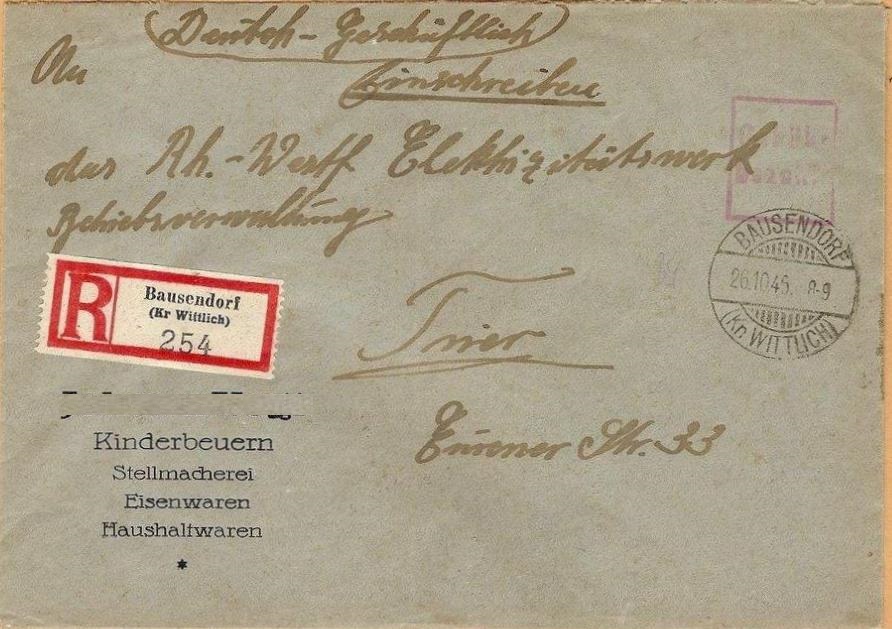 Deutsch - Geschäftlich
An
Einschreiben
das Rh.-Westf Elektrizitätswerk
Betriebsverwaltung
Trier
Eurener Str. 33
R
Bausendorf
(Kr Wittlich)
254
BAUSENDORF
26.10.45. 8-9
(Kr. WITTLICH)
Kinderbeuern
Stellmacherei
Eisenwaren
Haushaltwaren
*